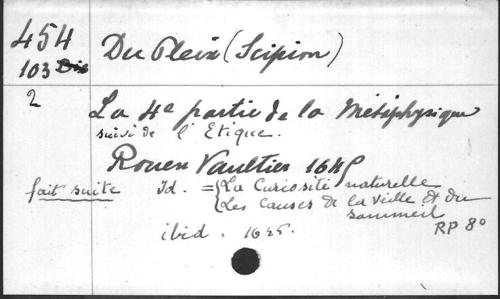 454 Du Pleix (Scipion)
103 Bis
2 La 4e partie de la Métaphysique
suivi de l'Etique.
Rouen Vaultier 1645
fait suite Id. = {La Curiosité naturelle
{Les Causes de la Ville et du
sommeil
ibid. 1645.
RP 8º